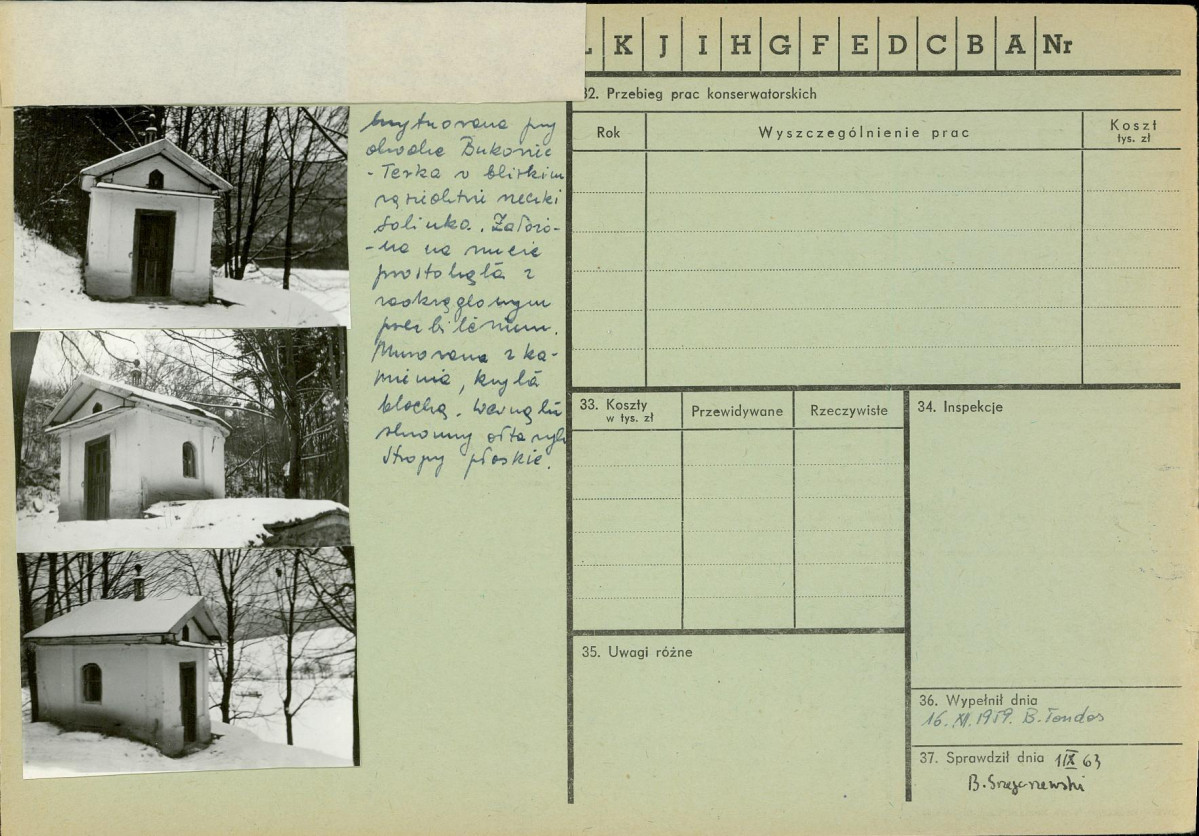 K J I H G F E D C B A Nr
32. Przebieg prac konserwatorskich
Rok
Wyszczególnienie prac
Koszt
tys. zł
Usytuowana przy
drodze Bukowiec
- Terka w bliskim
sąsiedztwie rzeki
Solinka. Założo-
-na na rzucie
prostokąta z
zaokrąglonym
prezbiterium.
Murowana z ka-
mienia, kryta
blachą. Wewnątrz
skromny ołtarzyk
Stropy płaskie.
33. Koszty
w tys. zł
Przewidywane
Rzeczywiste
34. Inspekcje
35. Uwagi różne
36. Wypełnił dnia
16. XI. 1959. B. Tondos
37. Sprawdził dnia 1 IX 63
B.